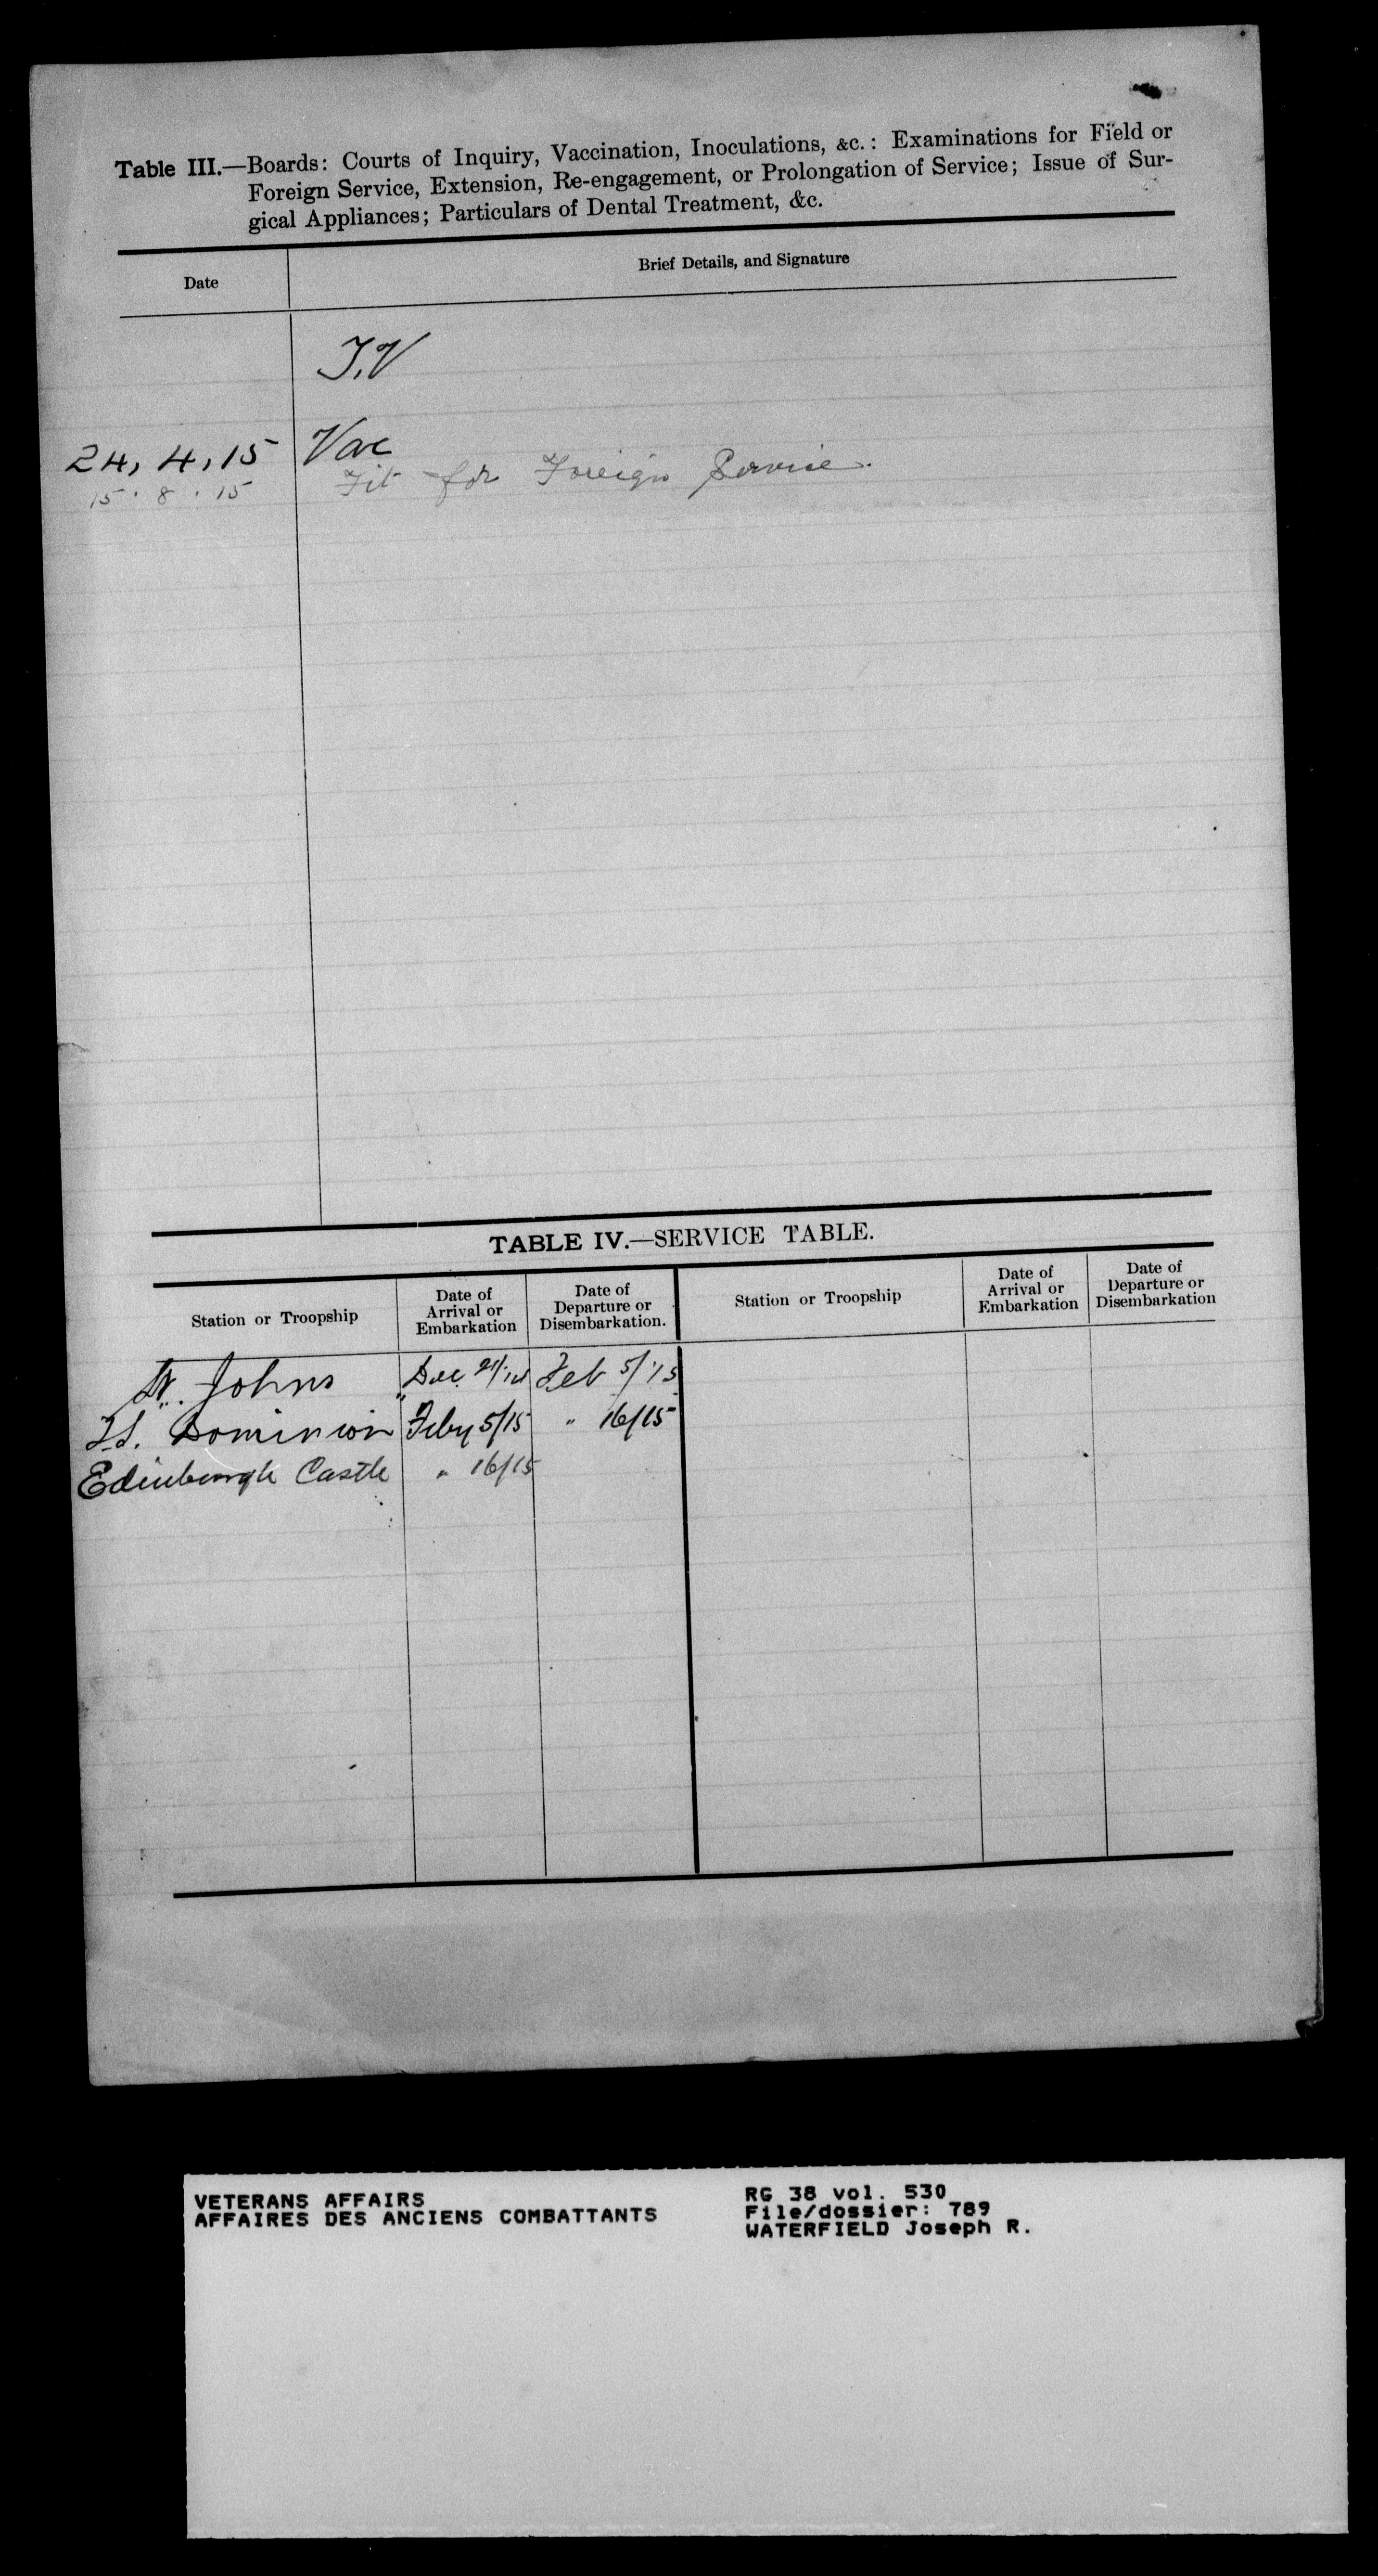 Table III.—Boards: Courts of Inquiry, Vaccination, Inoculations, &c.: Examinations for Field or
Foreign Service, Extension, Re-engagement, or Prolongation of Service; Issue of Sur-
gical Appliances; Particulars of Dental Treatment, &c.
Date Brief Details, and Signature
T.V
24, 4, 15 Vac
15 . 8 . 15 Fit for Foreign Service.
TABLE IV.—SERVICE TABLE.
Station or Troopship Date of Arrival or Embarkation Date of Departure or Disembarkation. Station or Troopship Date of Arrival or Embarkation Date of Departure or Disembarkation
St. Johns Dec 21/14 Feb 5/15
T.S. Dominion Feby 5/15 " 16/15
Edinburgh Castle " 16/15
VETERANS AFFAIRS RG 38 vol. 530
AFFAIRES DES ANCIENS COMBATTANTS File/dossier: 789
WATERFIELD Joseph R.